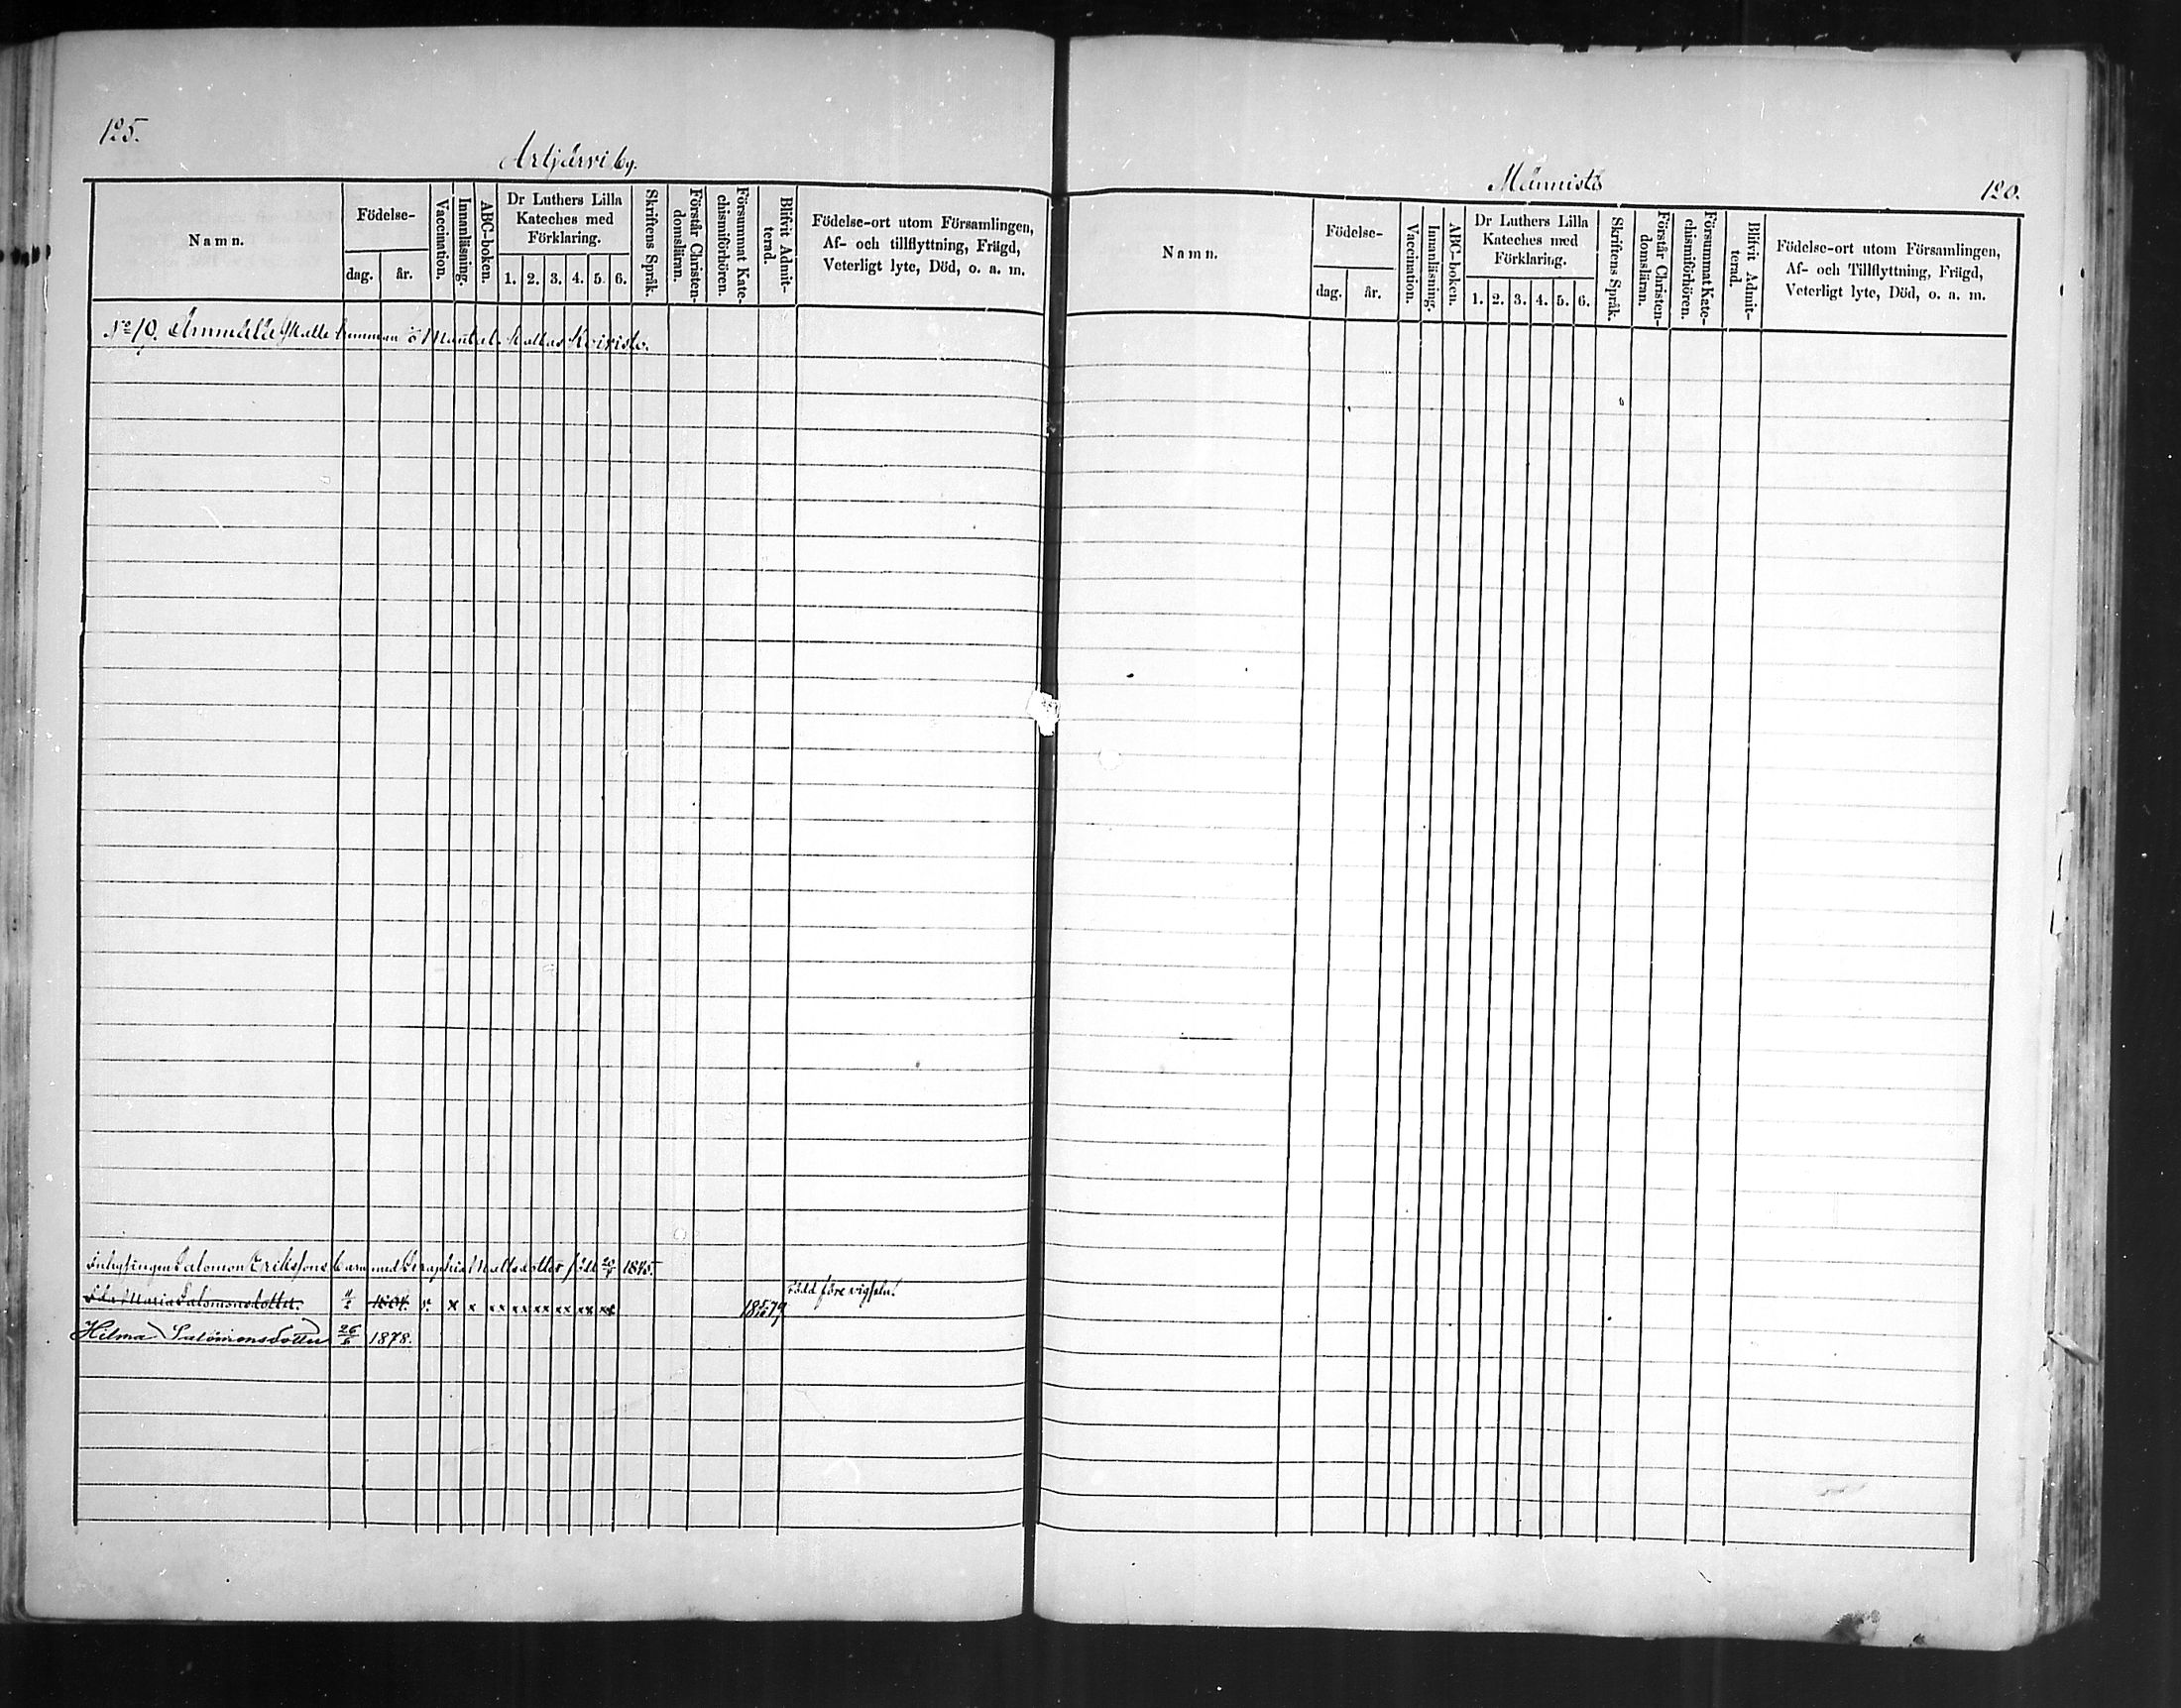 125.
Artjärvi by.
Namn.
Födelse-
dag.
år.
Vaccination.
Innanläsning.
ABC-boken.
Dr Luthers Lilla
Kateches med
Förklaring.
1. 2. 3. 4. 5. 6.
Skriftens Språk.
Förstår Christen-
domsläran.
Försummat Kate-
chismiförhören.
Blifvit Admit-
terad.
Födelse-ort utom Församlingen,
Af- och tillflyttning, Frägd,
Veterligt lyte, Död, o. a. m.
No 10. Ammälä Mantal Kallas Koivisto.
Inhysingen Salomon Erikssons barn med Matlsdotter 1875.
född före vigseln.
Ida Maria Salomonsdotter. 1864. v. x x xx xx xx xx xx xx
Hilma Salomonsdotter 26/6 1878.
Männistö
120.
Namn.
Födelse-
dag.
år.
Vaccination.
Innanläsning.
ABC-boken.
Dr Luthers Lilla
Kateches med
Förklaring.
1. 2. 3. 4. 5. 6.
Skriftens Språk.
Förstår Christen-
domsläran.
Försummat Kate-
chismiförhören.
Blifvit Admit-
terad.
Födelse-ort utom Församlingen,
Af- och Tillflyttning, Frägd,
Veterligt lyte, Död, o. a. m.